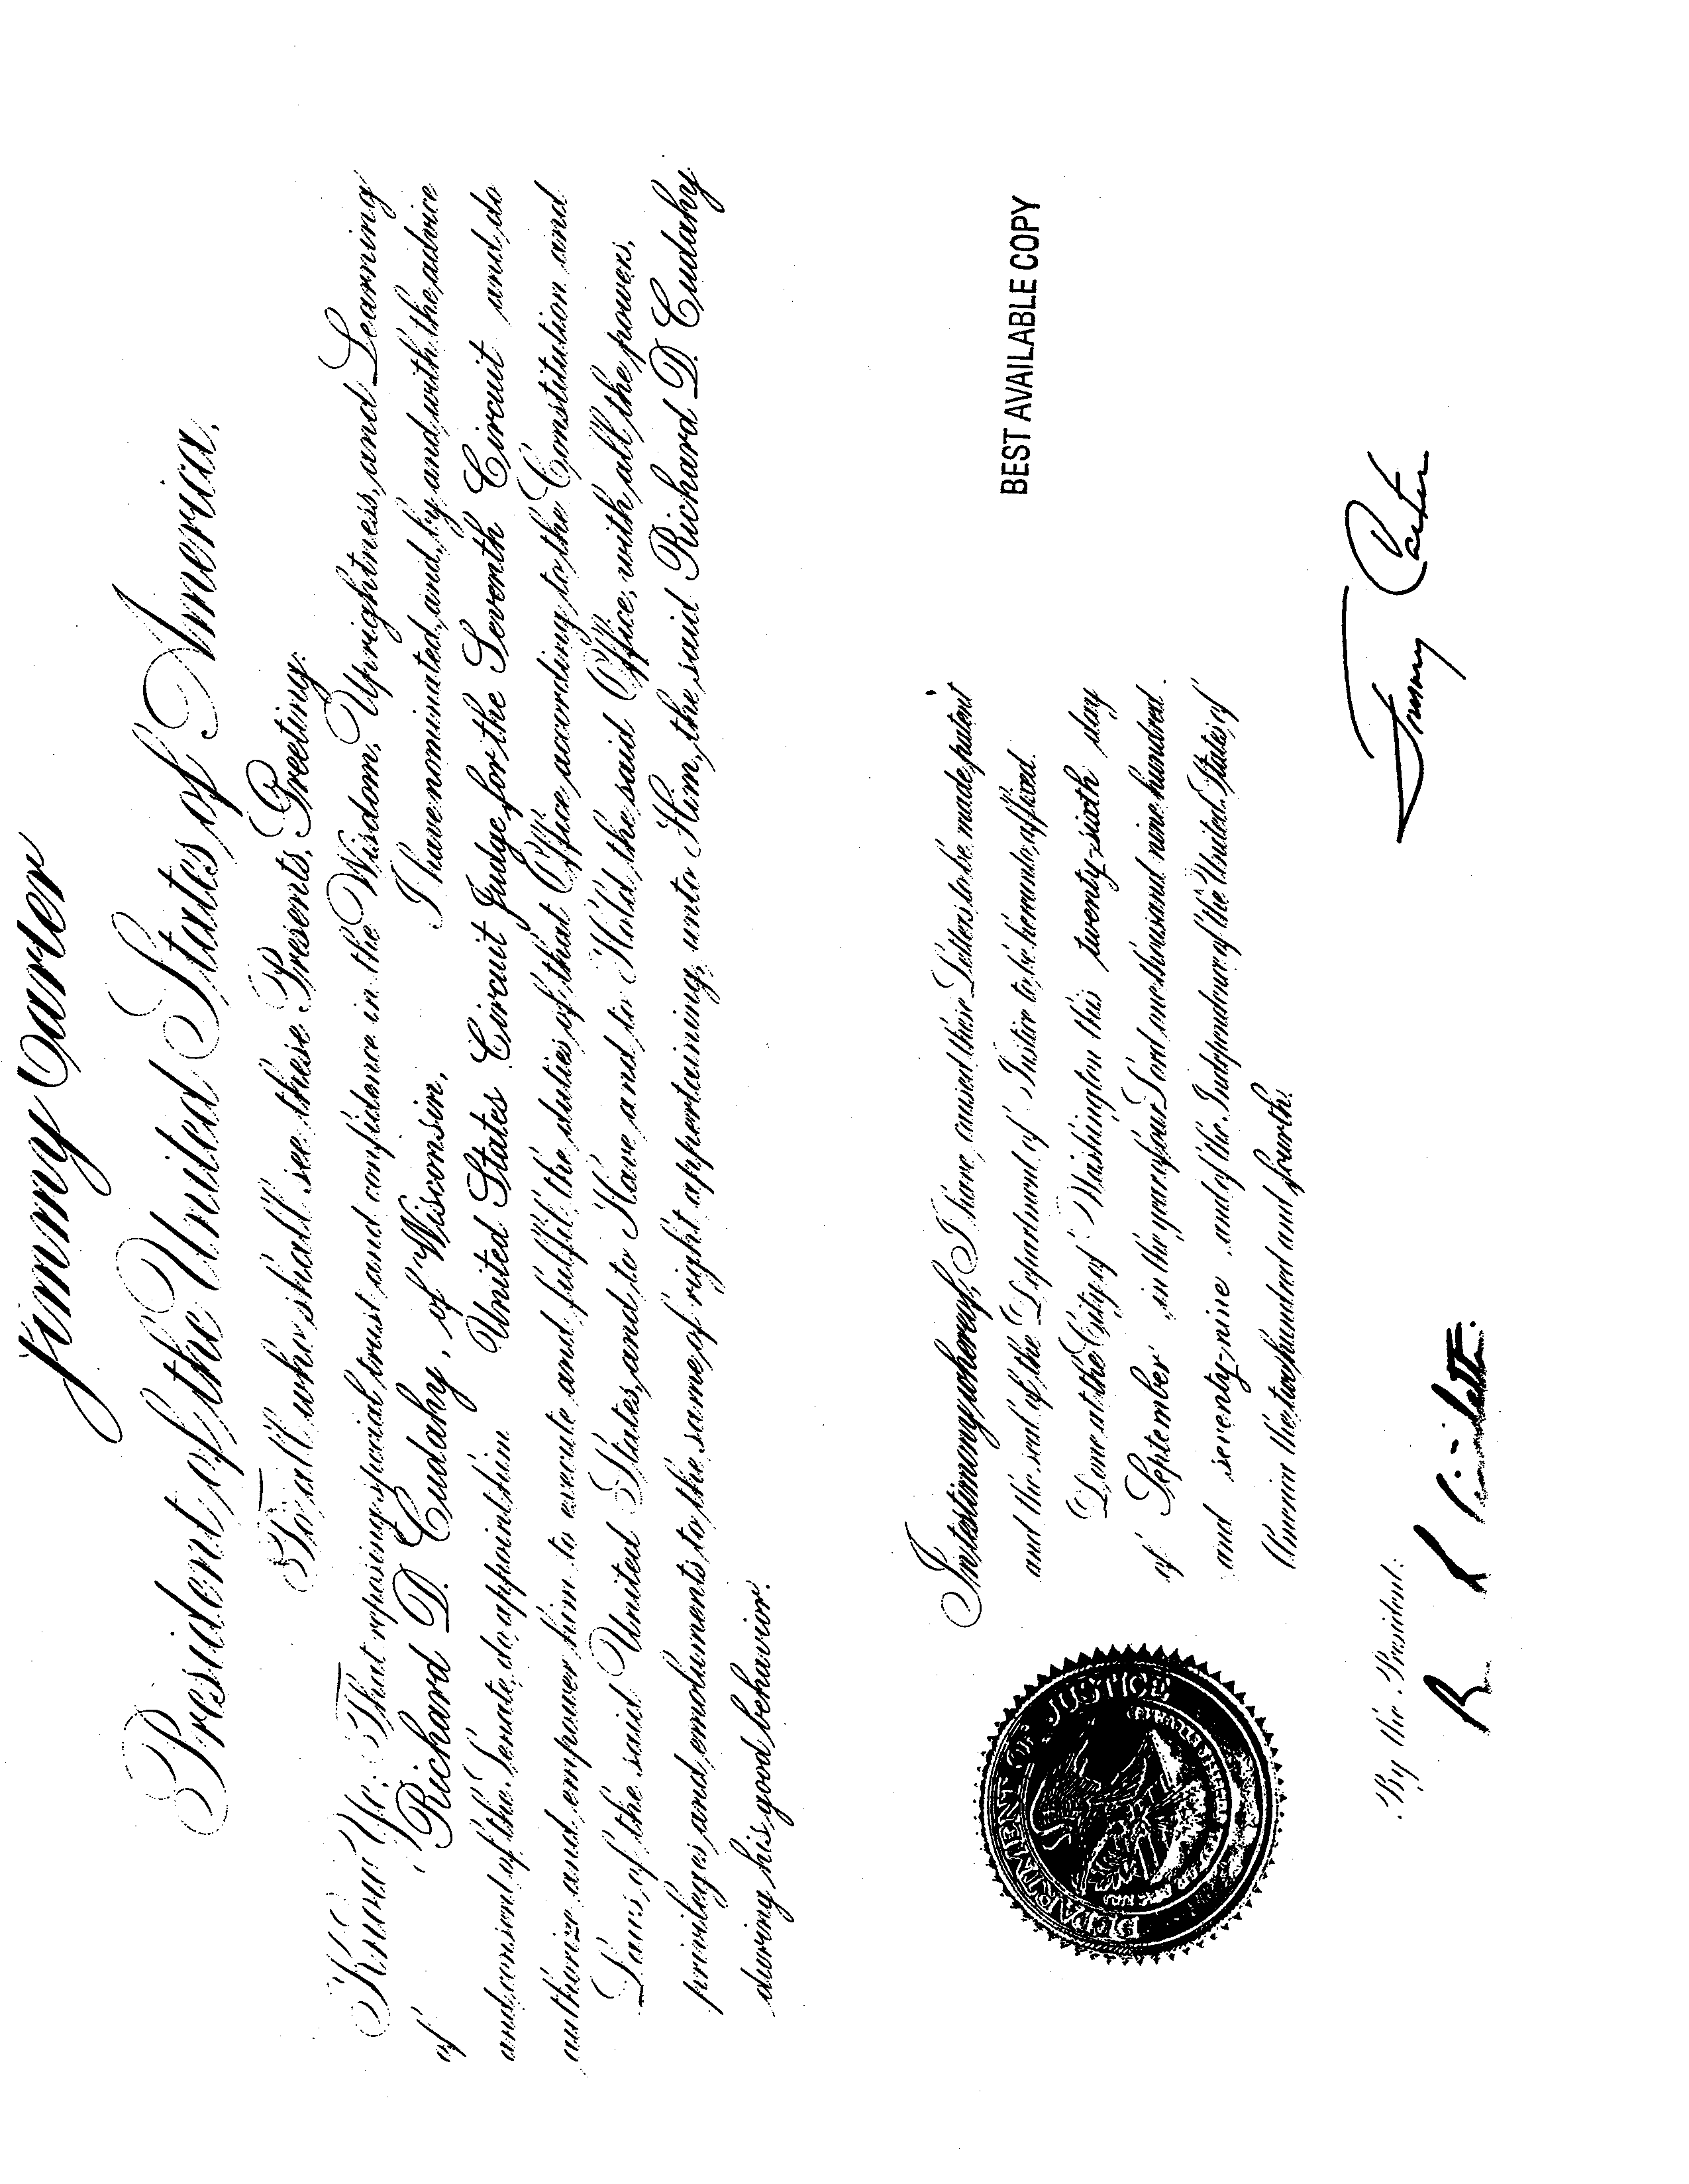 Jimmy Carter
President of the United States of America,
To all who shall see these Presents, Greeting:
Know Ye: That reposing special trust and confidence in the Wisdom, Uprightness, and Learning
of Richard D. Cudahy, of Wisconsin, I have nominated, and, by and with the advice
and consent of the Senate, do appoint him United States Circuit Judge for the Seventh Circuit and do
authorize and empower him to execute and fulfil the duties of that Office according to the Constitution and
Laws of the said United States, and to Have and to Hold the said Office, with all the powers,
privileges and emoluments to the same of right appertaining, unto Him, the said Richard D. Cudahy
during his good behavior.
BEST AVAILABLE COPY
In testimony whereof, I have caused these Letters to be made patent
and the seal of the Department of Justice to be hereunto affixed.
Done at the City of Washington this twenty-sixth day
of September in the year of our Lord one thousand nine hundred
and seventy-nine and of the Independence of the United States of
America the two hundred and fourth.
DEPARTMENT OF JUSTICE
Jimmy Carter
By the President: